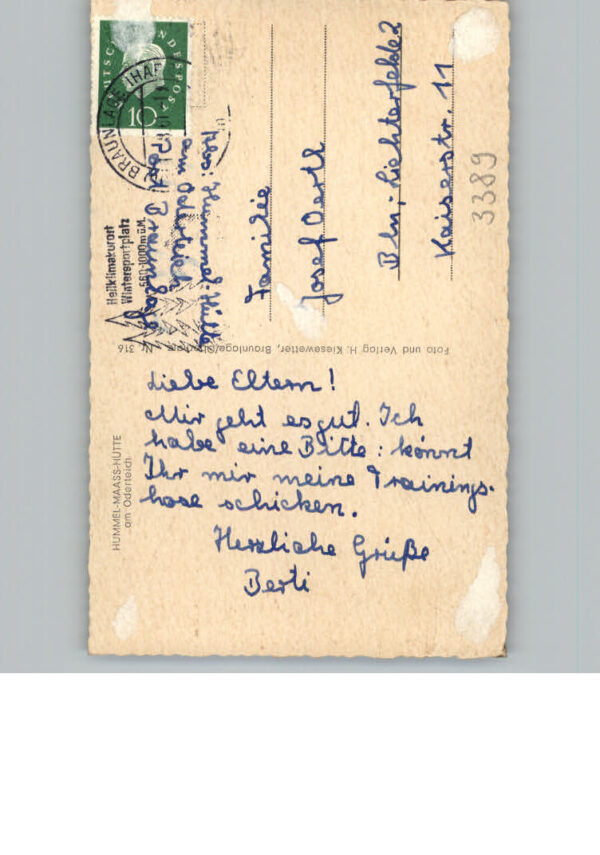 Liebe Eltern!
Mir geht es gut. Ich
habe eine Bitte: könnt
Ihr mir meine Trainings-
hose schicken.
Herzliche Grüße
Berti
Familie
Josef Oerth
Bln.-Lichterfelde 2
Kaiserstr. 11
3389
Hummel-Hütte
am Oderteich
Post Braunlage
Heilklimakurort
Wintersportplatz
560-1000 m ü.M.
BRAUNLAGE (HARZ
BUNDESPOST
10
HUMMEL-MAASS-HÜTTE
am Oderteich
Foto und Verlag H. Kiesewetter, Braunlage Nr. 316